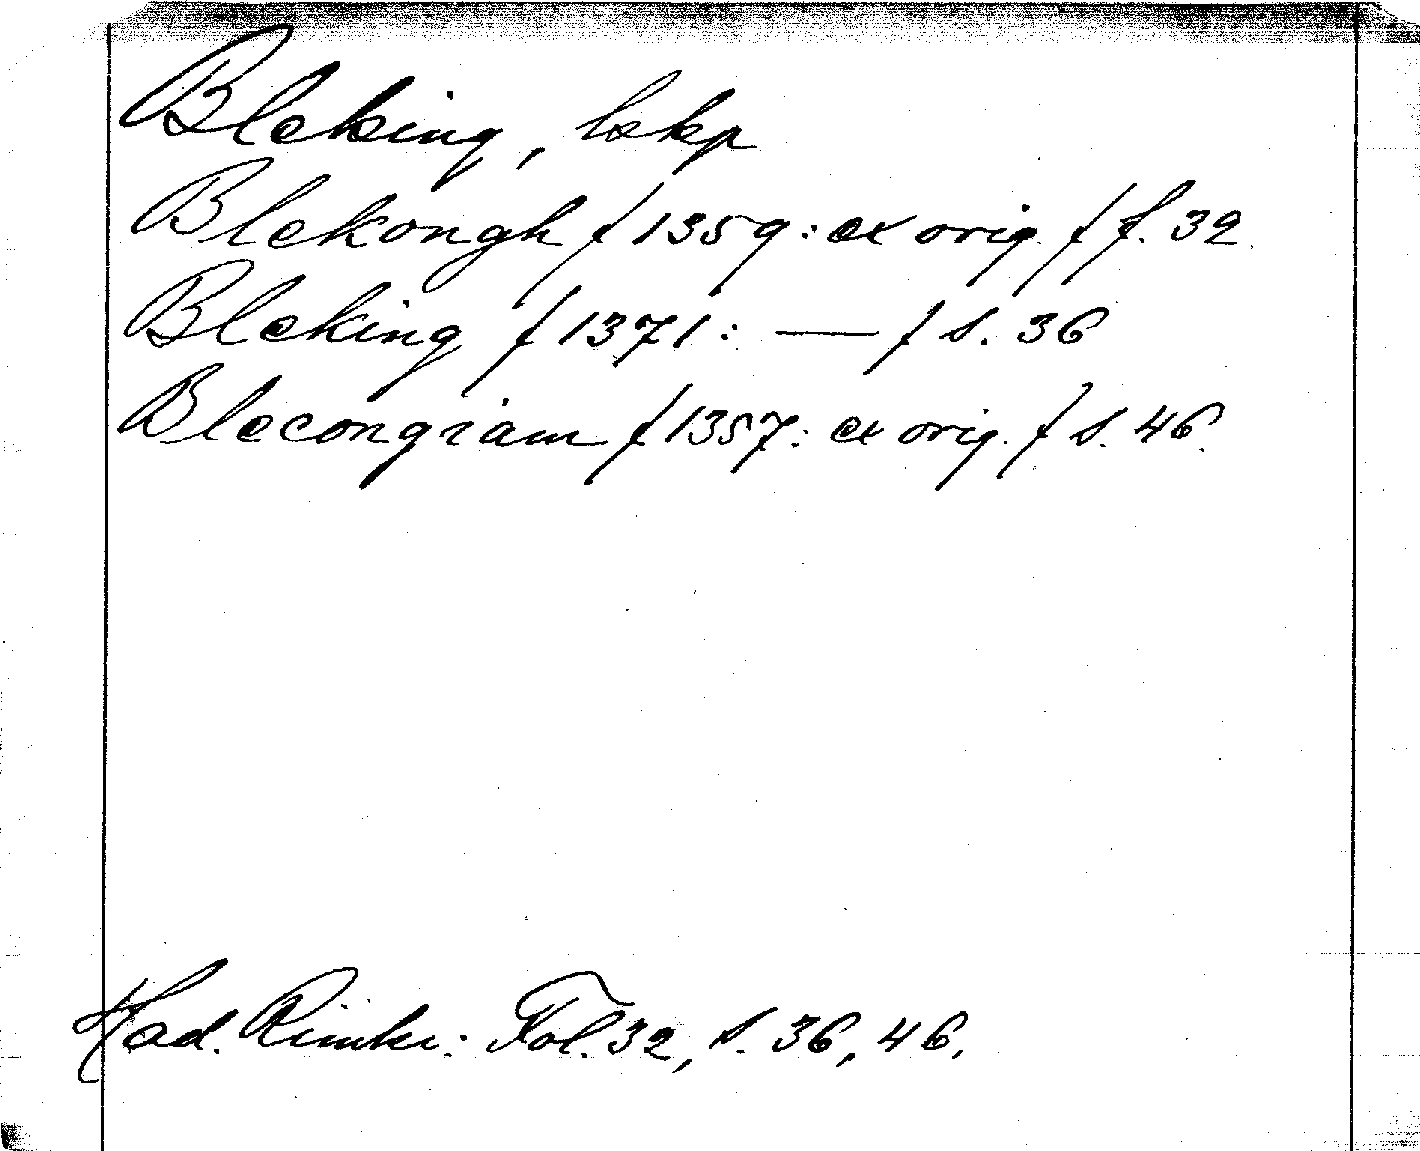 Bleking, lskp
Blekongh / 1359: ex orig. / f. 32
Bleking / 1371: — / s. 36
Blecongiam / 1357: ex orig. / s. 46.
Had. Rimkr.: Fol. 32, s. 36, 46.